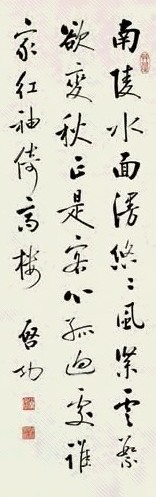 南陵水面漫悠々風緊雲繁
欲變秋正是客心孤迥處誰
家紅袖倚高樓 啓功